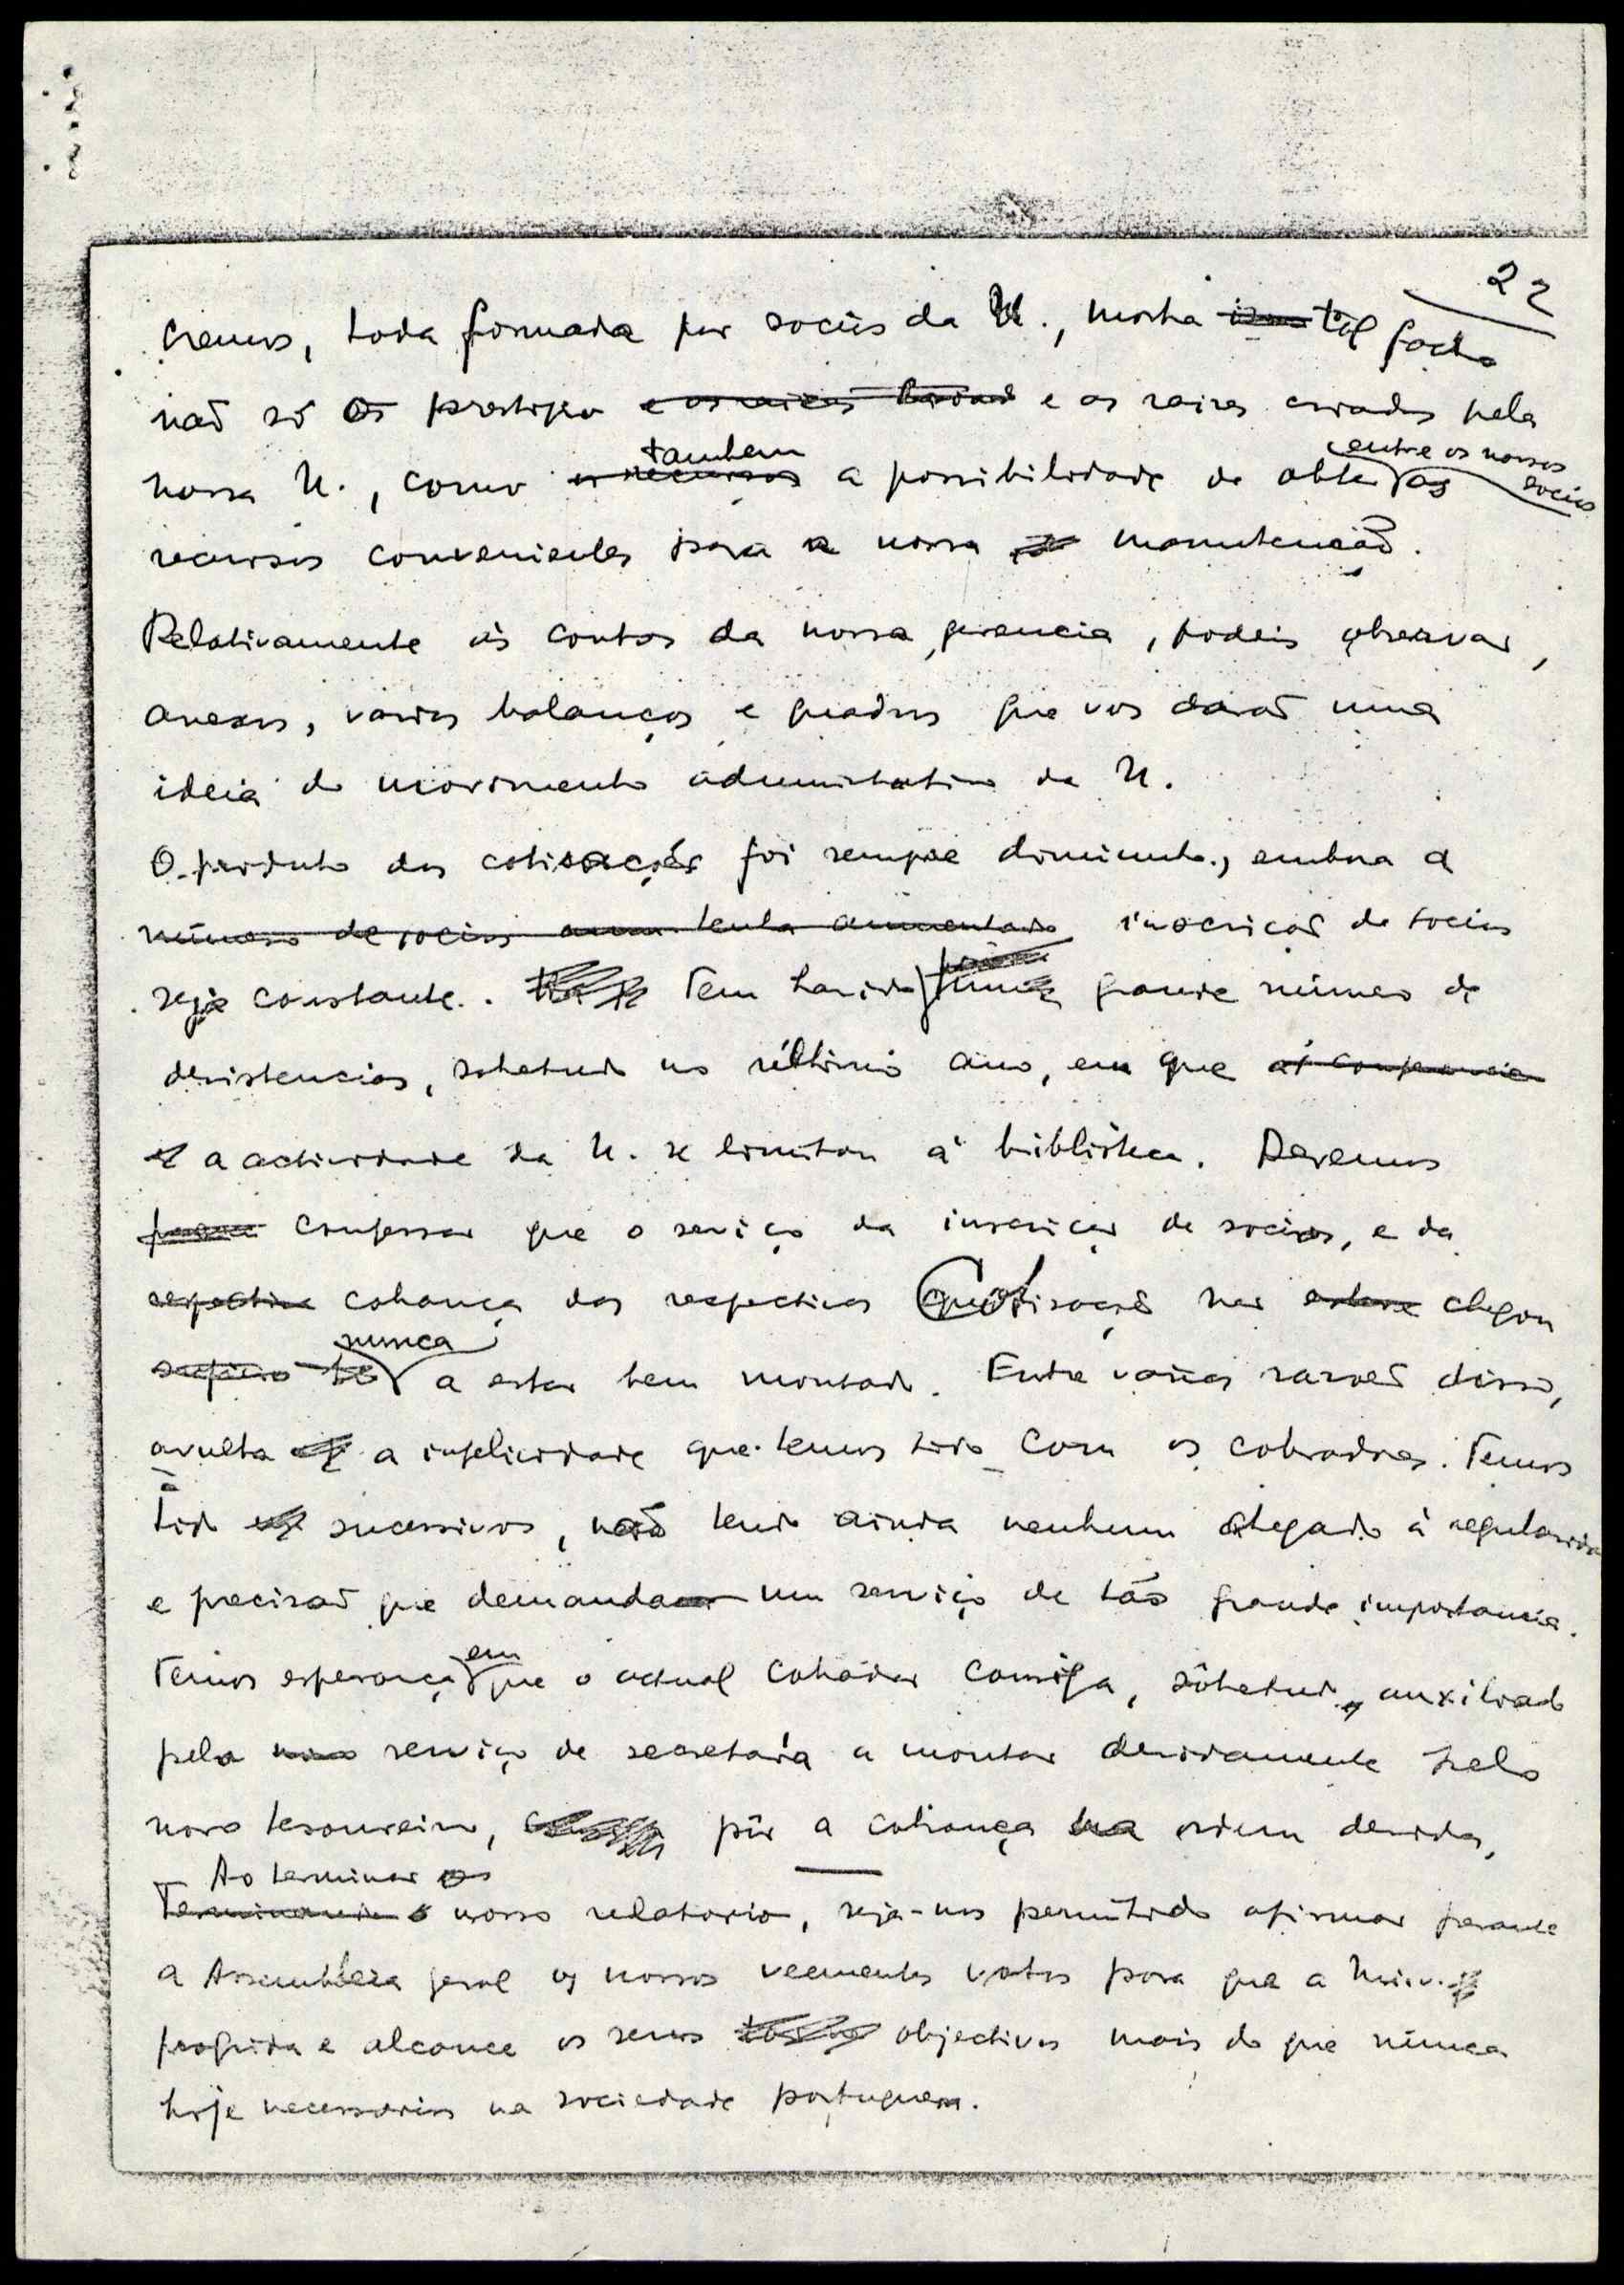 22
cremos, toda formada por socios da U., mostra tal facto
não só o prestigio e as raizes criadas pela
nossa U., como tambem a possibilidade de obter entre os nossos socios os
recursos convenientes para a nossa manutenção.
Relativamente ás contas da nossa gerencia, podeis observar,
anexos, varios balanços e quadros que vos darão uma
ideia do movimento administrativo da U.
O producto das cotisações foi sempre diminuto, embora a
número de socios tenha aumentado inscrição de socios
seja constante. Tem havido grande número de
desistencias, sobretudo no último ano, em que
a actividade da U. se limitou á biblioteca. Devemos
confessar que o serviço da inscrição de socios, e da
respectiva cobrança das respectivas Cotisações chegou
nunca a estar bem montado. Entre varias razões disso,
avulta a infelicidade que temos tido com os cobradores. Temos
tido sucessivos, não tendo ainda nenhum chegado á regularida
e precisão que demanda um serviço de tão grande importancia.
Temos esperança em que o actual cobrador consiga, sobretudo, auxiliado
pelo serviço de secretaria a montar devidamente pelo
novo tesoureiro, pôr a cobrança na ordem devida.
Ao terminar o
Terminando o nosso relatorio, seja-nos permitido afirmar perante
a Assembleia geral os nossos veementes votos para que a Univ.
progrida e alcance os seus objectivos mais do que nunca
hoje necessarios na sociedade portuguesa.